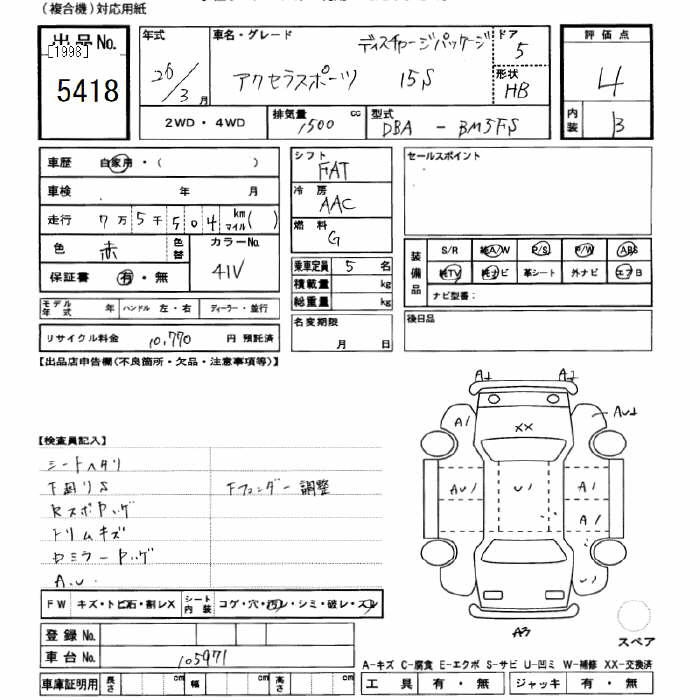 (複合機)対応用紙
出品No.
[1998]
5418
年式
26/3月
車名・グレード
ディスチャージパッケージ
アクセラスポーツ 15S
ドア
5
形状
HB
評価点
4
内装
B
2WD・4WD
排気量
1500 cc
型式
DBA - BM5FS
車歴 自家用・( )
車検 年 月
走行 7万5千504 km マイル( )
色 赤 色替
カラーNo.
41V
保証書 有・無
モデル年式 年 ハンドル 左・右 ディーラー・並行
リサイクル料金 10,770 円 預託済
シフト
FAT
冷房
AAC
燃料
G
乗車定員 5 名
積載量 kg
総重量 kg
名変期限
月 日
セールスポイント
装備品
S/R 純A/W P/S P/W ABS
純TV 純ナビ 革シート 外ナビ エアB
ナビ型番:
後日品
【出品店申告欄(不良箇所・欠品・注意事項等)】
【検査員記入】
シートヘタリ
下廻りS Fフェンダー調整
Rスポイラーキズ
トリムキズ
ドアミラーキズ
A.U.
FW キズ・トビ石・割レX
シート内装 コゲ・穴・汚レ・シミ・破レ・スレ
登録No.
車台No. 105971
車庫証明用 長さ cm 幅 cm 高さ cm
A1 A2
A1 XX AU1
AU1 U1 A1
A1
U1
A3
スペア
A-キズ C-腐食 E-エクボ S-サビ U-凹ミ W-補修 XX-交換済
工具 有・無 ジャッキ 有・無